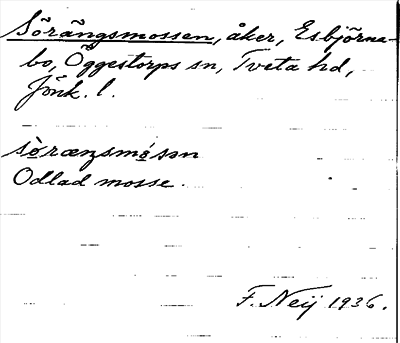 Sörängsmossen, åker, Esbjörna-
bo, Öggestorps sn, Tveta hd,
Jönk. l.
sòræŋsmósən
Odlad mosse.
F. Neij 1936.